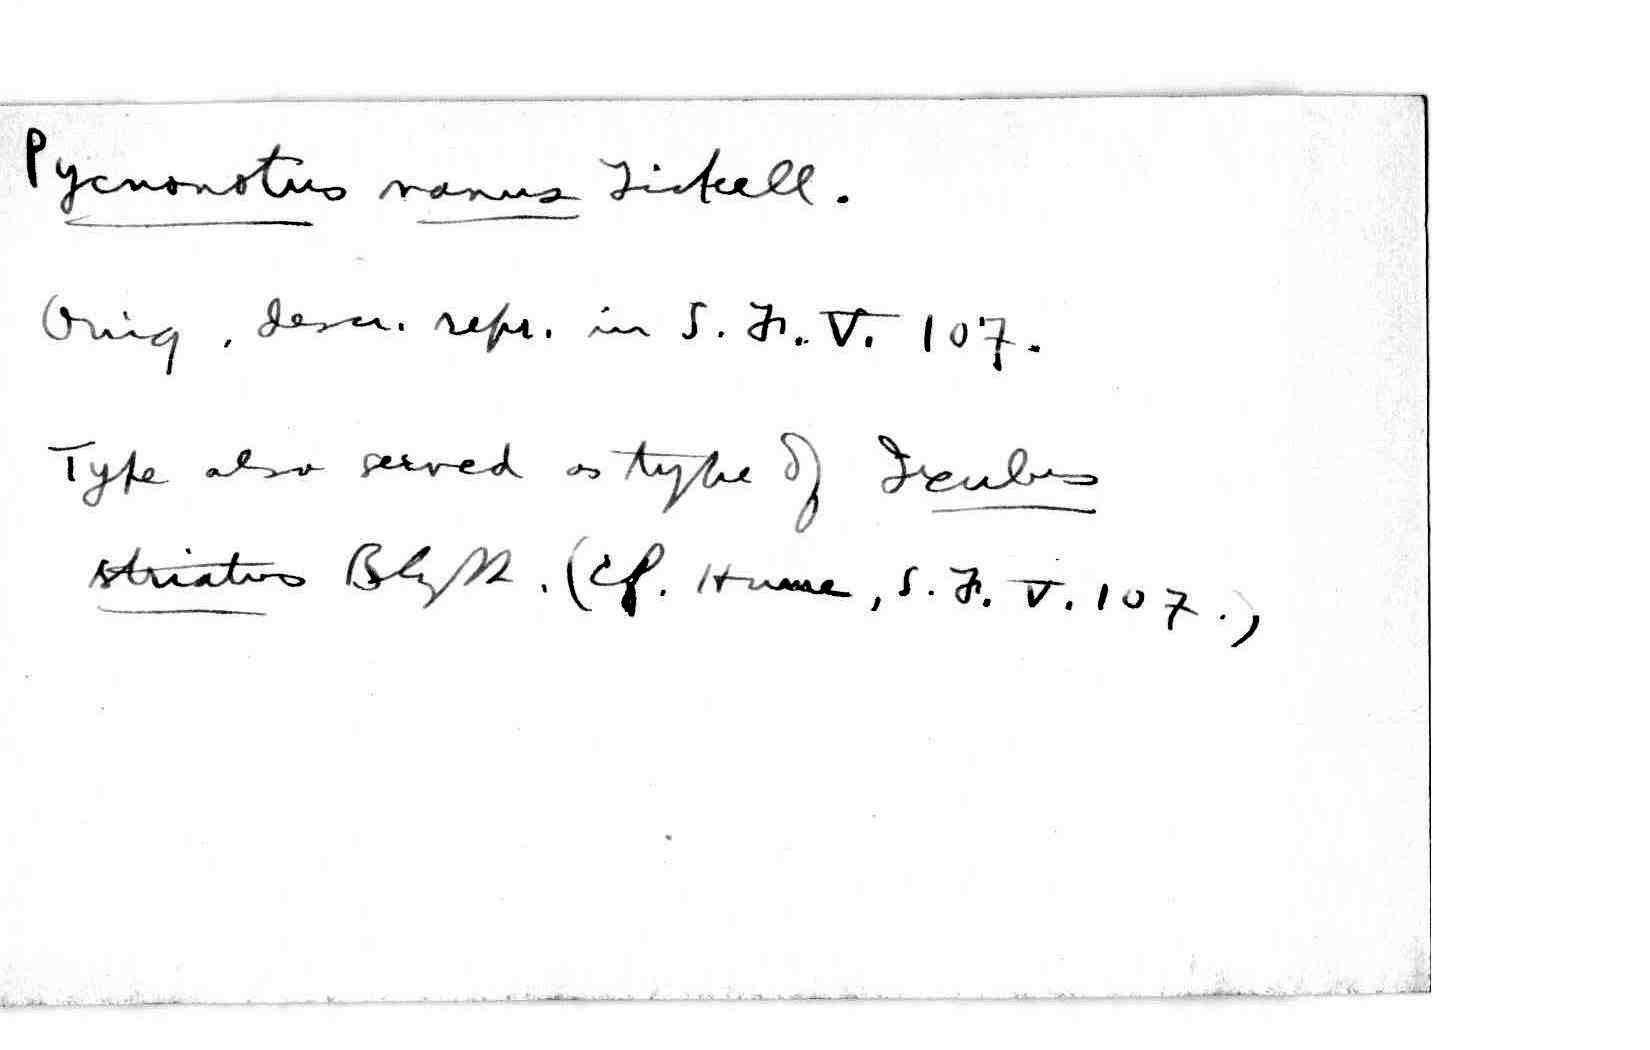 Pycnonotus nanus Tickell.
Orig. descr. repr. in S. F. V. 107.
Type also served as type of Ixulus
striatus Blyth. (Cf. Hume, S. F. V. 107.)